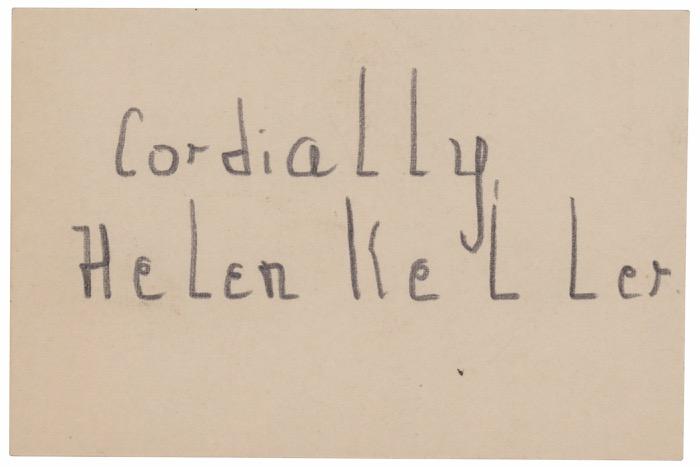 Cordially,
Helen Keller